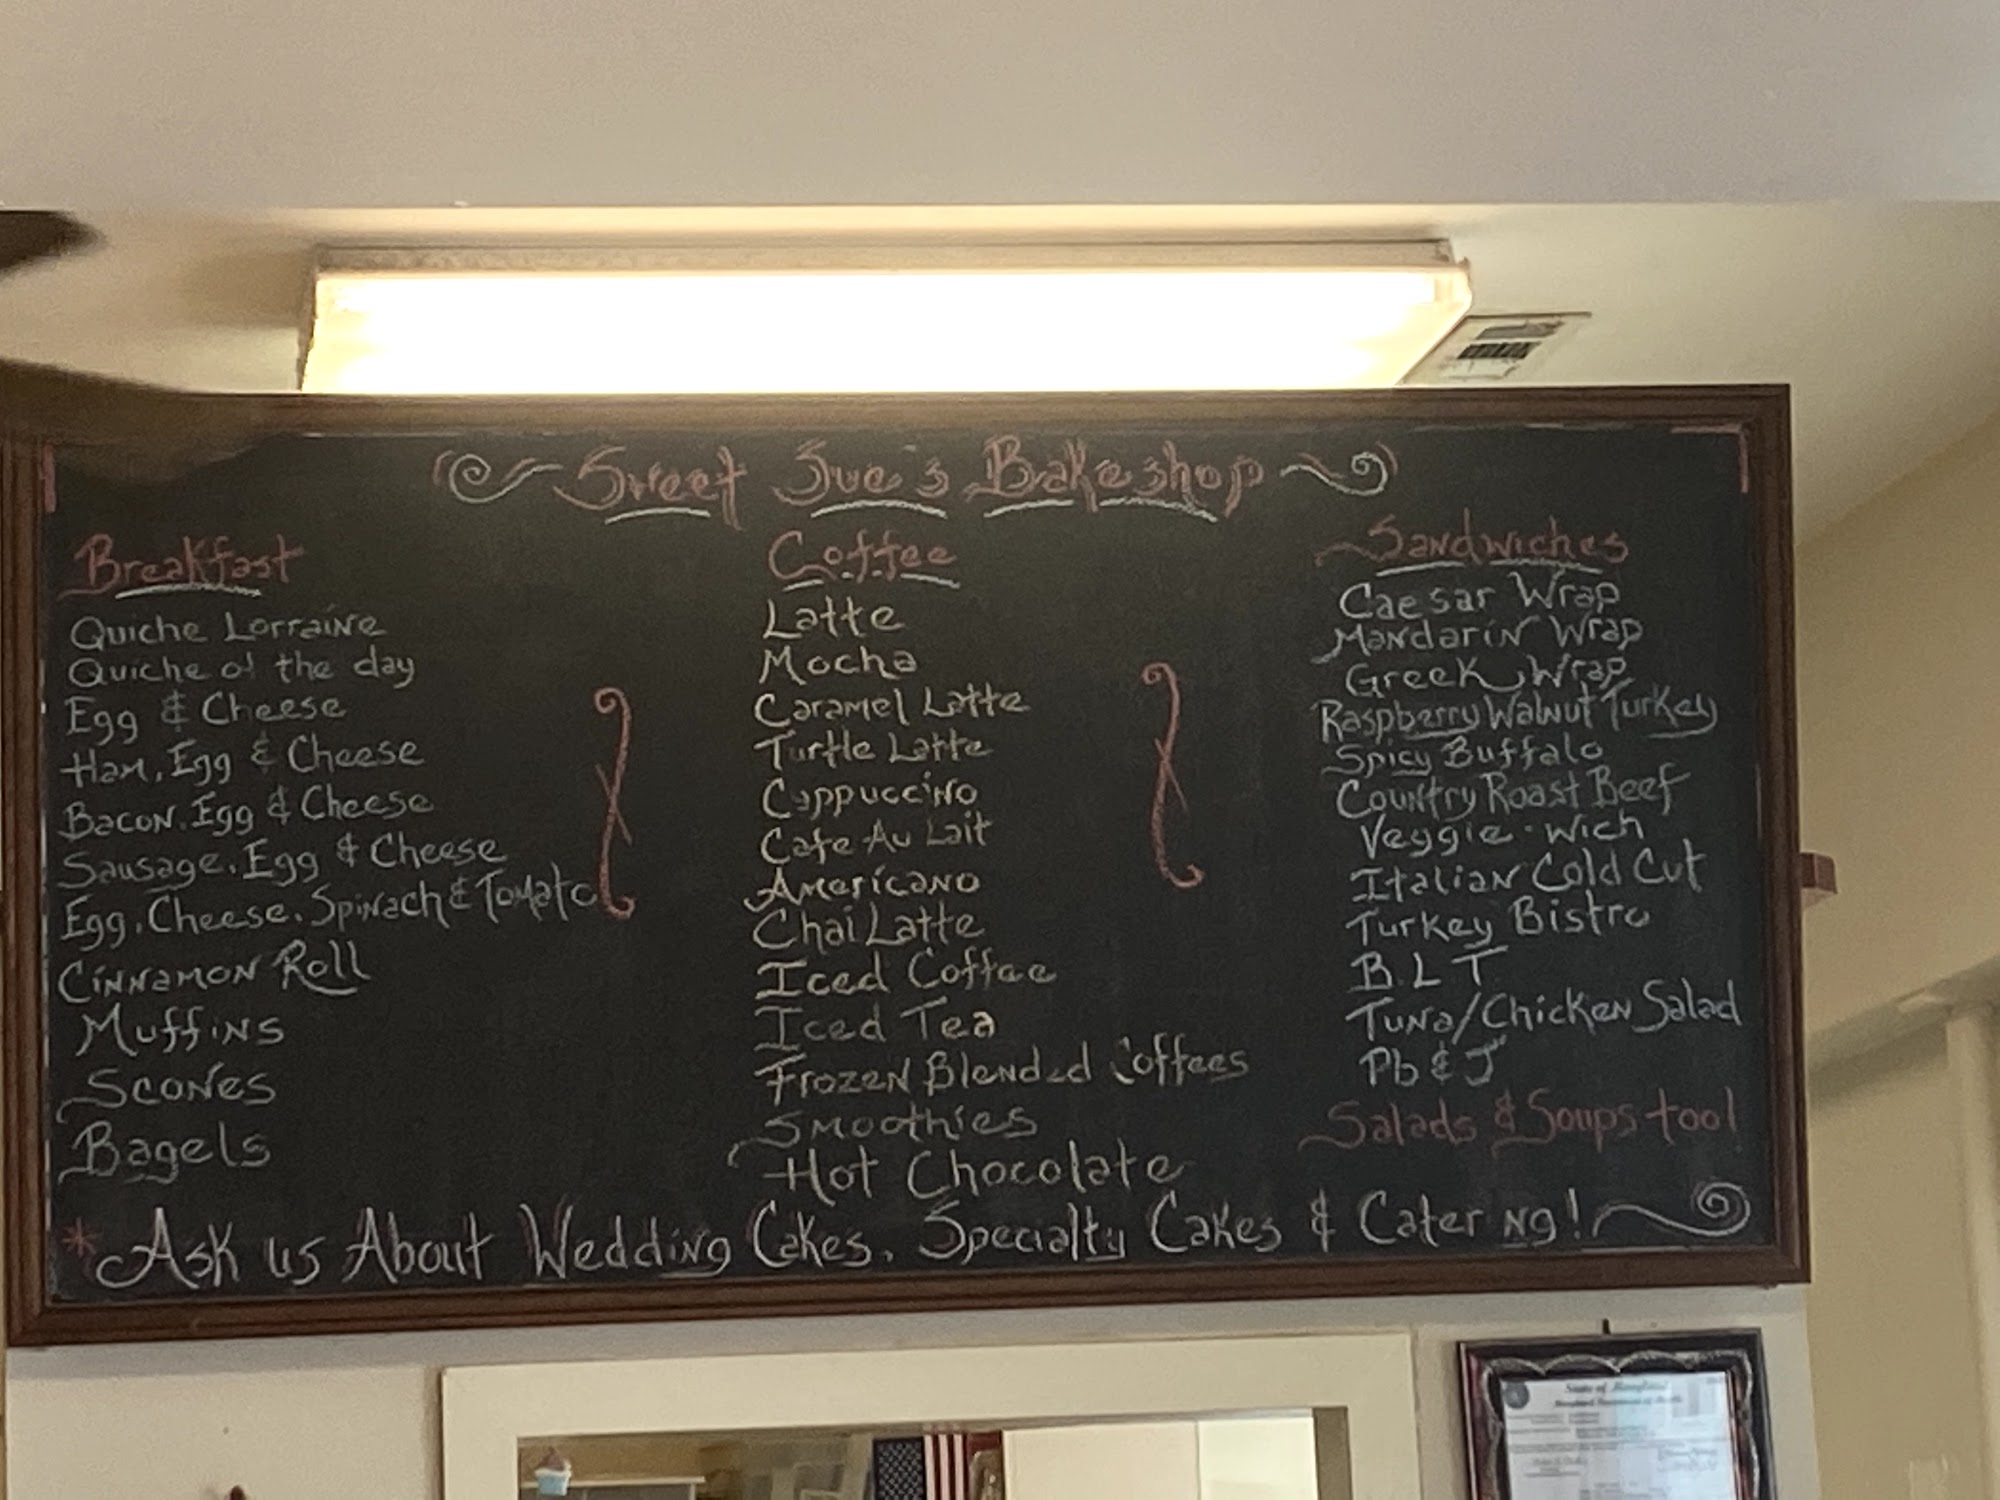 Sweet Sue's Bakeshop
Breakfast
Quiche Lorraine
Quiche of the day
Egg & Cheese
Ham, Egg & Cheese
Bacon, Egg & Cheese
Sausage, Egg & Cheese
Egg, Cheese, Spinach & Tomato
Cinnamon Roll
Muffins
Scones
Bagels
Coffee
Latte
Mocha
Caramel Latte
Turtle Latte
Cappuccino
Cafe Au Lait
Americano
Chai Latte
Iced Coffee
Iced Tea
Frozen Blended Coffees
Smoothies
Hot Chocolate
Sandwiches
Caesar Wrap
Mandarin Wrap
Greek Wrap
Raspberry Walnut Turkey
Spicy Buffalo
Country Roast Beef
Veggie-wich
Italian Cold Cut
Turkey Bistro
B.L.T
Tuna/Chicken Salad
Pb & J
Salads & Soups too!
*Ask us About Wedding Cakes, Specialty Cakes & Catering!
State of Maryland